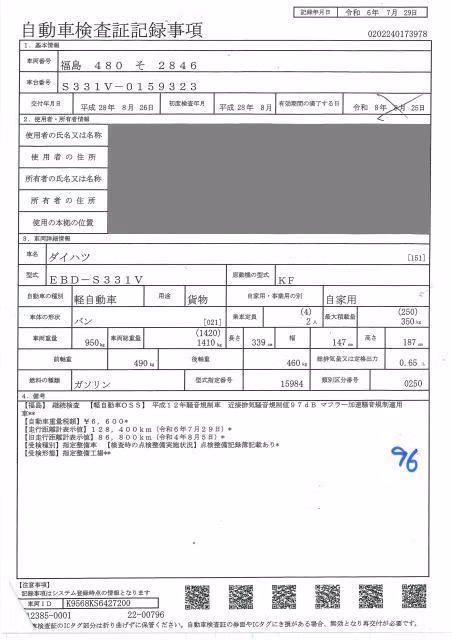 記録年月日 令和 6年 7月 29日
自動車検査証記録事項
0202240173978
1. 基本情報
車両番号 福島 480 そ 2846
車台番号 S331V-0159323
交付年月日 平成 28年 8月 26日 初度検査年月 平成 28年 8月 有効期間の満了する日 令和 8年 8月 25日
2. 使用者・所有者情報
使用者の氏名又は名称
使用者の住所
所有者の氏名又は名称
所有者の住所
使用の本拠の位置
3. 車両詳細情報
車名 ダイハツ [151]
型式 EBD-S331V 原動機の型式 KF
自動車の種別 軽自動車 用途 貨物 自家用・事業用の別 自家用
車体の形状 バン [021] 乗車定員 (4) 2人 最大積載量 (250) 350kg
車両重量 950kg 車両総重量 (1420) 1410kg 長さ 339cm 幅 147cm 高さ 187cm
前軸重 490kg 後軸重 460kg 総排気量又は定格出力 0.65 L
燃料の種類 ガソリン 型式指定番号 15984 類別区分番号 0250
4. 備考
【福島】 継続検査 【軽自動車OSS】 平成12年騒音規制車 近接排気騒音規制値97dB マフラー加速騒音規制適用
車**
【自動車重量税額】¥6,600*
【走行距離計表示値】128,400km (令和6年7月29日)*
【旧走行距離計表示値】86,800km (令和4年8月5日)*
【受検種別】指定整備車 【検査時の点検整備実施状況】点検整備記録簿記載あり*
【受検形態】指定整備工場**
96
【注意事項】
記録事項はシステム登録時点の情報となります
車両ID K9568KS6427200
12385-0001 22-00796
車検査証のICタグ部分は折り曲げずに保管ください。自動車検査証の券面やICタグにき損がある場合、無効となり再交付が必要です。